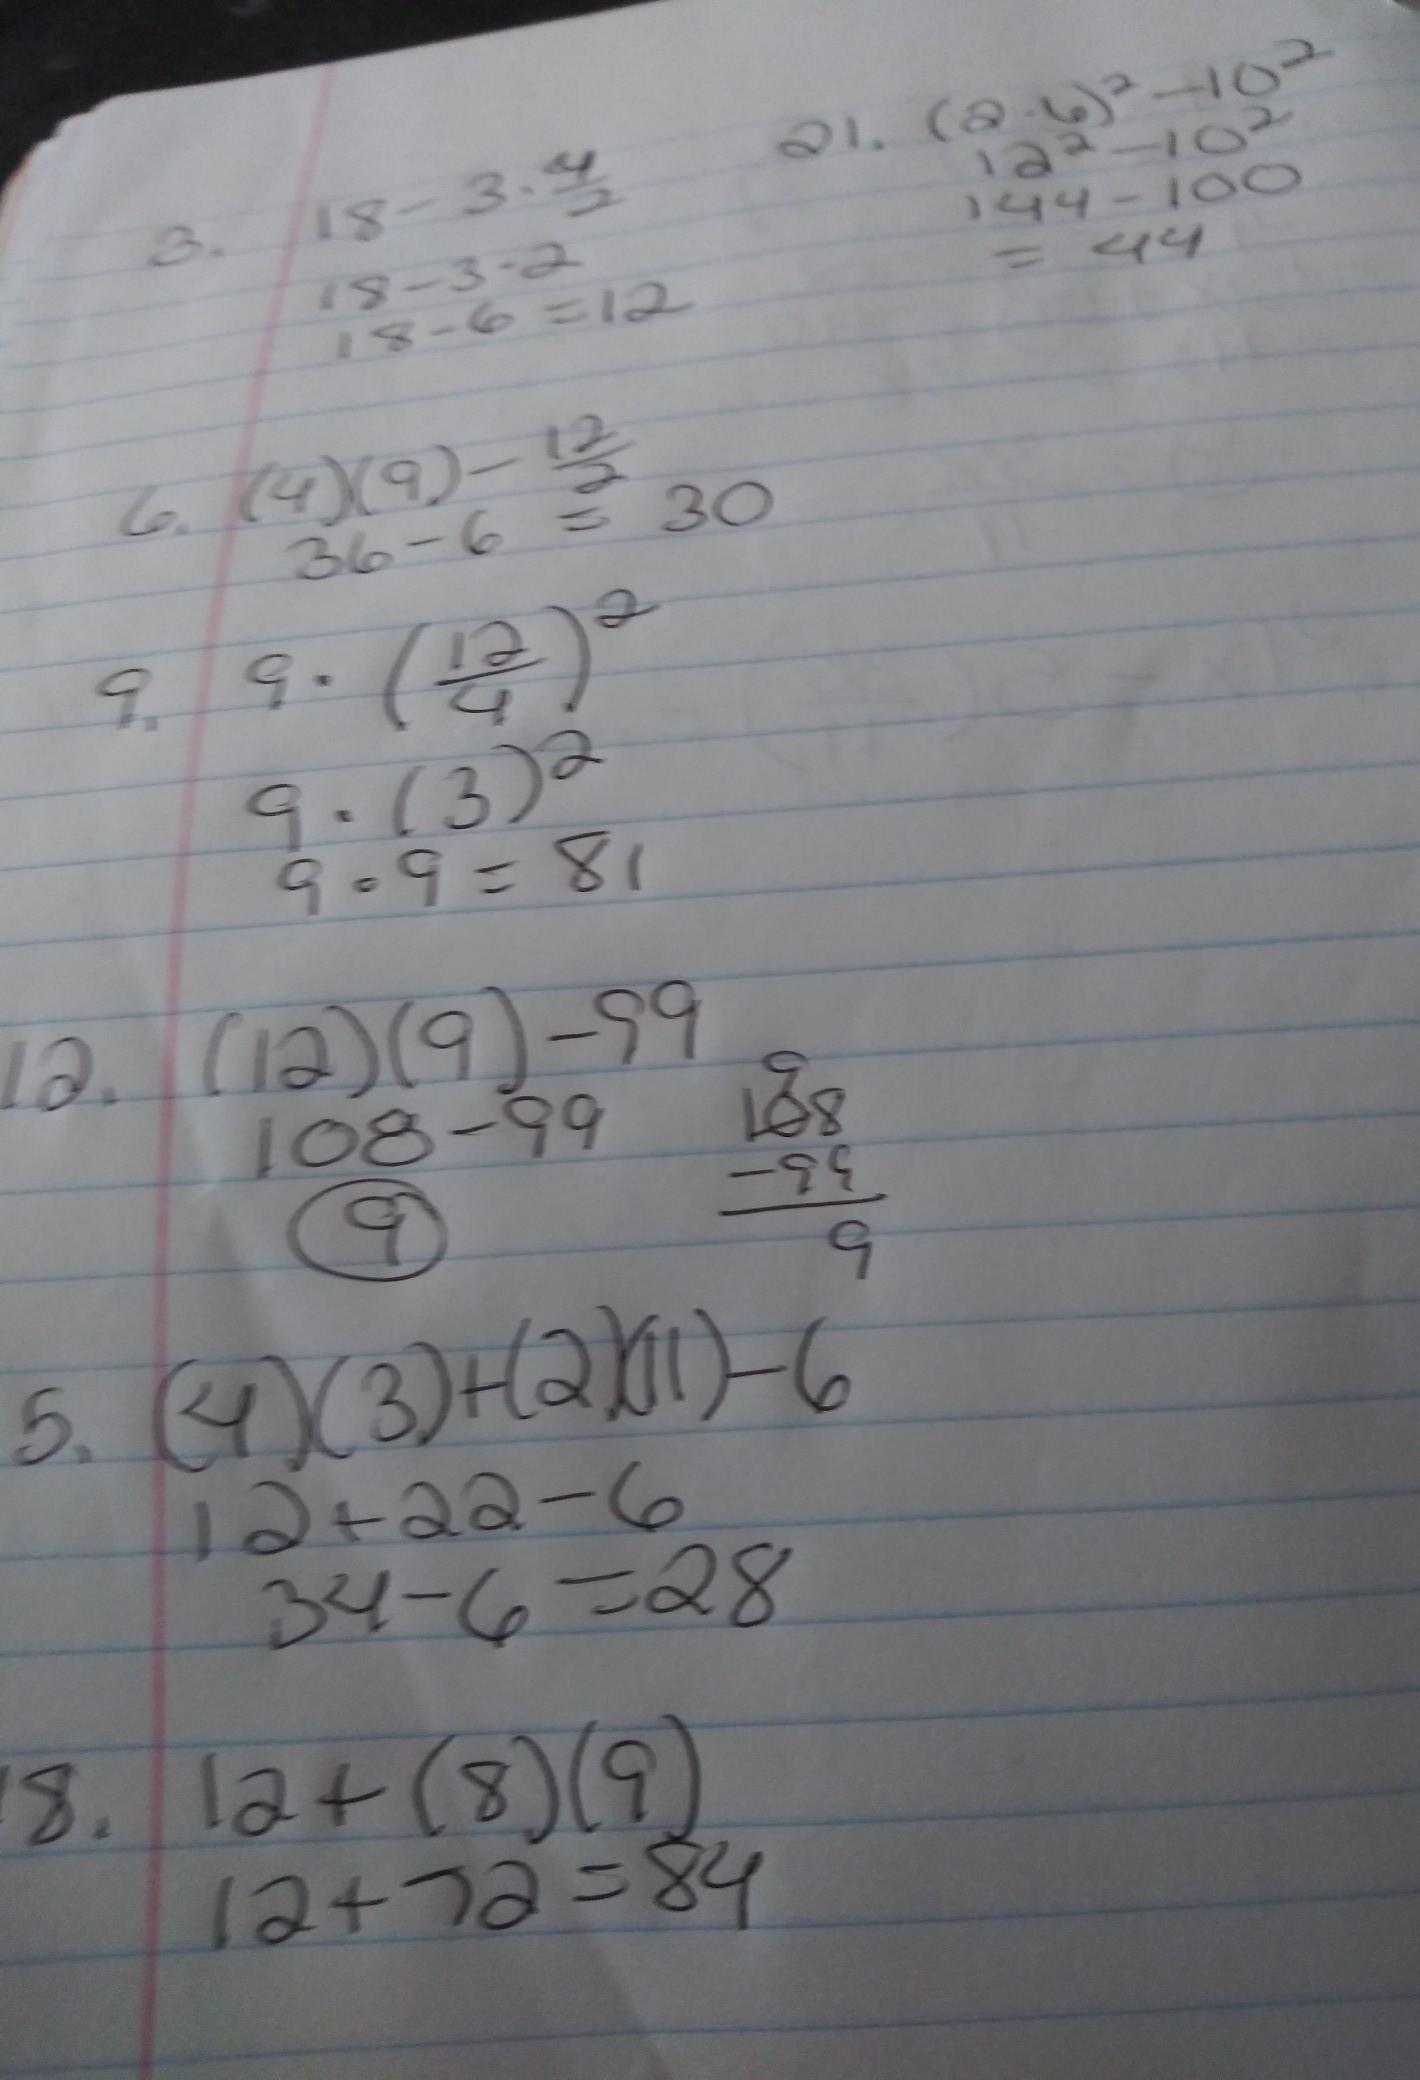 3. 18 - 3 · 4/2
18 - 3 · 2
18 - 6 = 12
21. (2 · 6)² - 10²
12² - 10²
144 - 100
= 44
6. (4)(9) - 12/2
36 - 6 = 30
9. 9 · (12/4)²
9 · (3)²
9 · 9 = 81
12. (12)(9) - 99
108 - 99
9
9
108
- 99
9
5. (4)(3) + (2)(11) - 6
12 + 22 - 6
34 - 6 = 28
18. 12 + (8)(9)
12 + 72 = 84